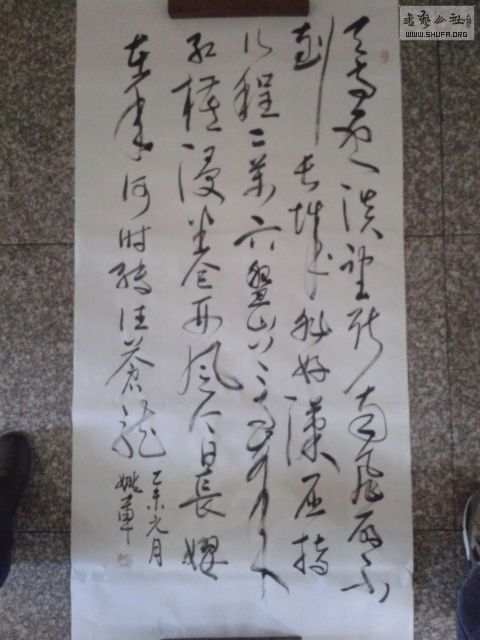 書藝公社
WWW.SHUFA.ORG
天高云淡望断南飛雁不
到长城非好漢屈指
行程二萬六盤山上高峰
红旗漫卷西风今日長缨
在手何时缚住蒼龍
乙未元月
姚